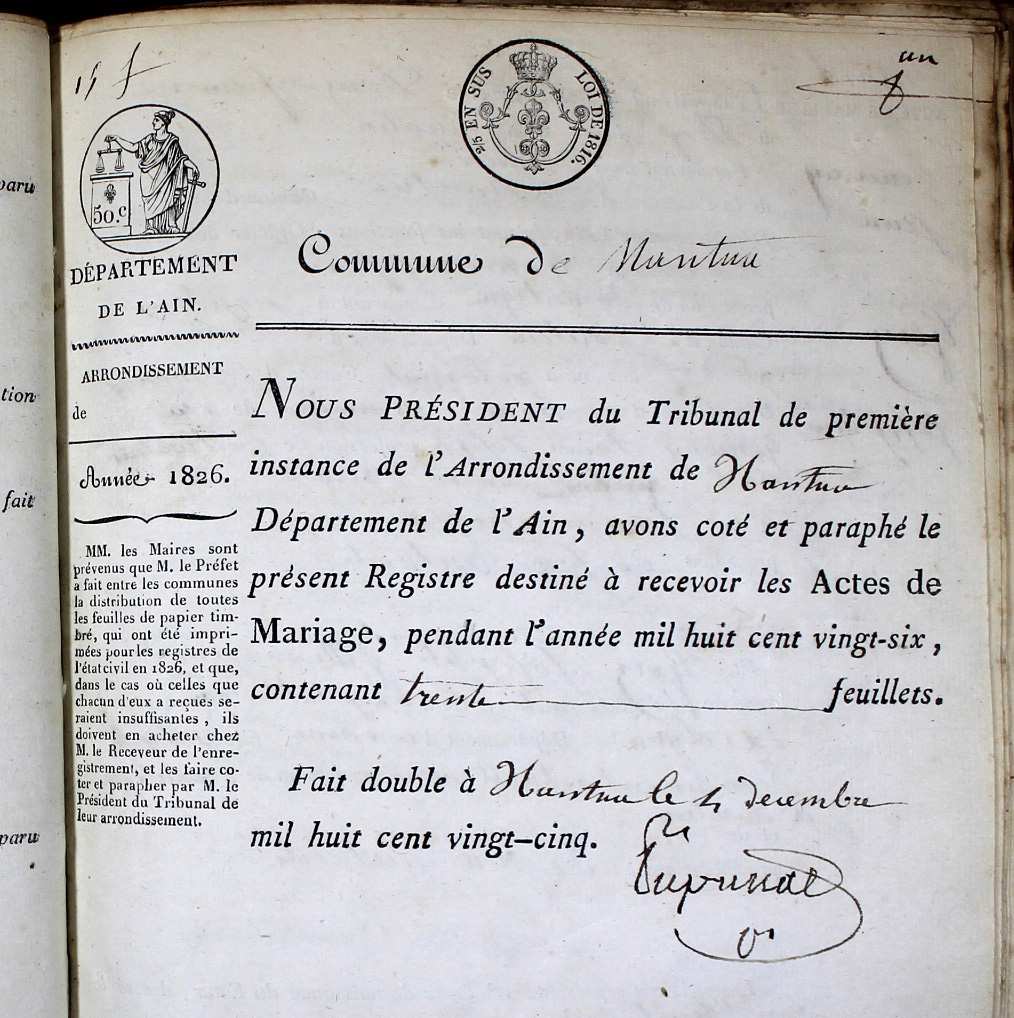 un
2/5 EN SUS LOI DE 1816.
50.c
DÉPARTEMENT
DE L'AIN.
ARRONDISSEMENT
de
Année 1826.
MM. les Maires sont
prévenus que M. le Préfet
a fait entre les communes
la distribution de toutes
les feuilles de papier tim-
bré, qui ont été impri-
mées pour les registres de
l'état civil en 1826, et que,
dans le cas où celles que
chacun d'eux a reçues se-
raient insuffisantes, ils
doivent en acheter chez
M. le Receveur de l'enre-
gistrement, et les faire co-
ter et parapher par M. le
Président du Tribunal de
leur arrondissement.
Commune de Nantua
NOUS PRÉSIDENT du Tribunal de première
instance de l'Arrondissement de Nantua
Département de l'Ain, avons coté et paraphé le
présent Registre destiné à recevoir les Actes de
Mariage, pendant l'année mil huit cent vingt-six,
contenant trente feuillets.
Fait double à Nantua le 4 decembre
mil huit cent vingt-cinq.
paru
tion
fait
paru